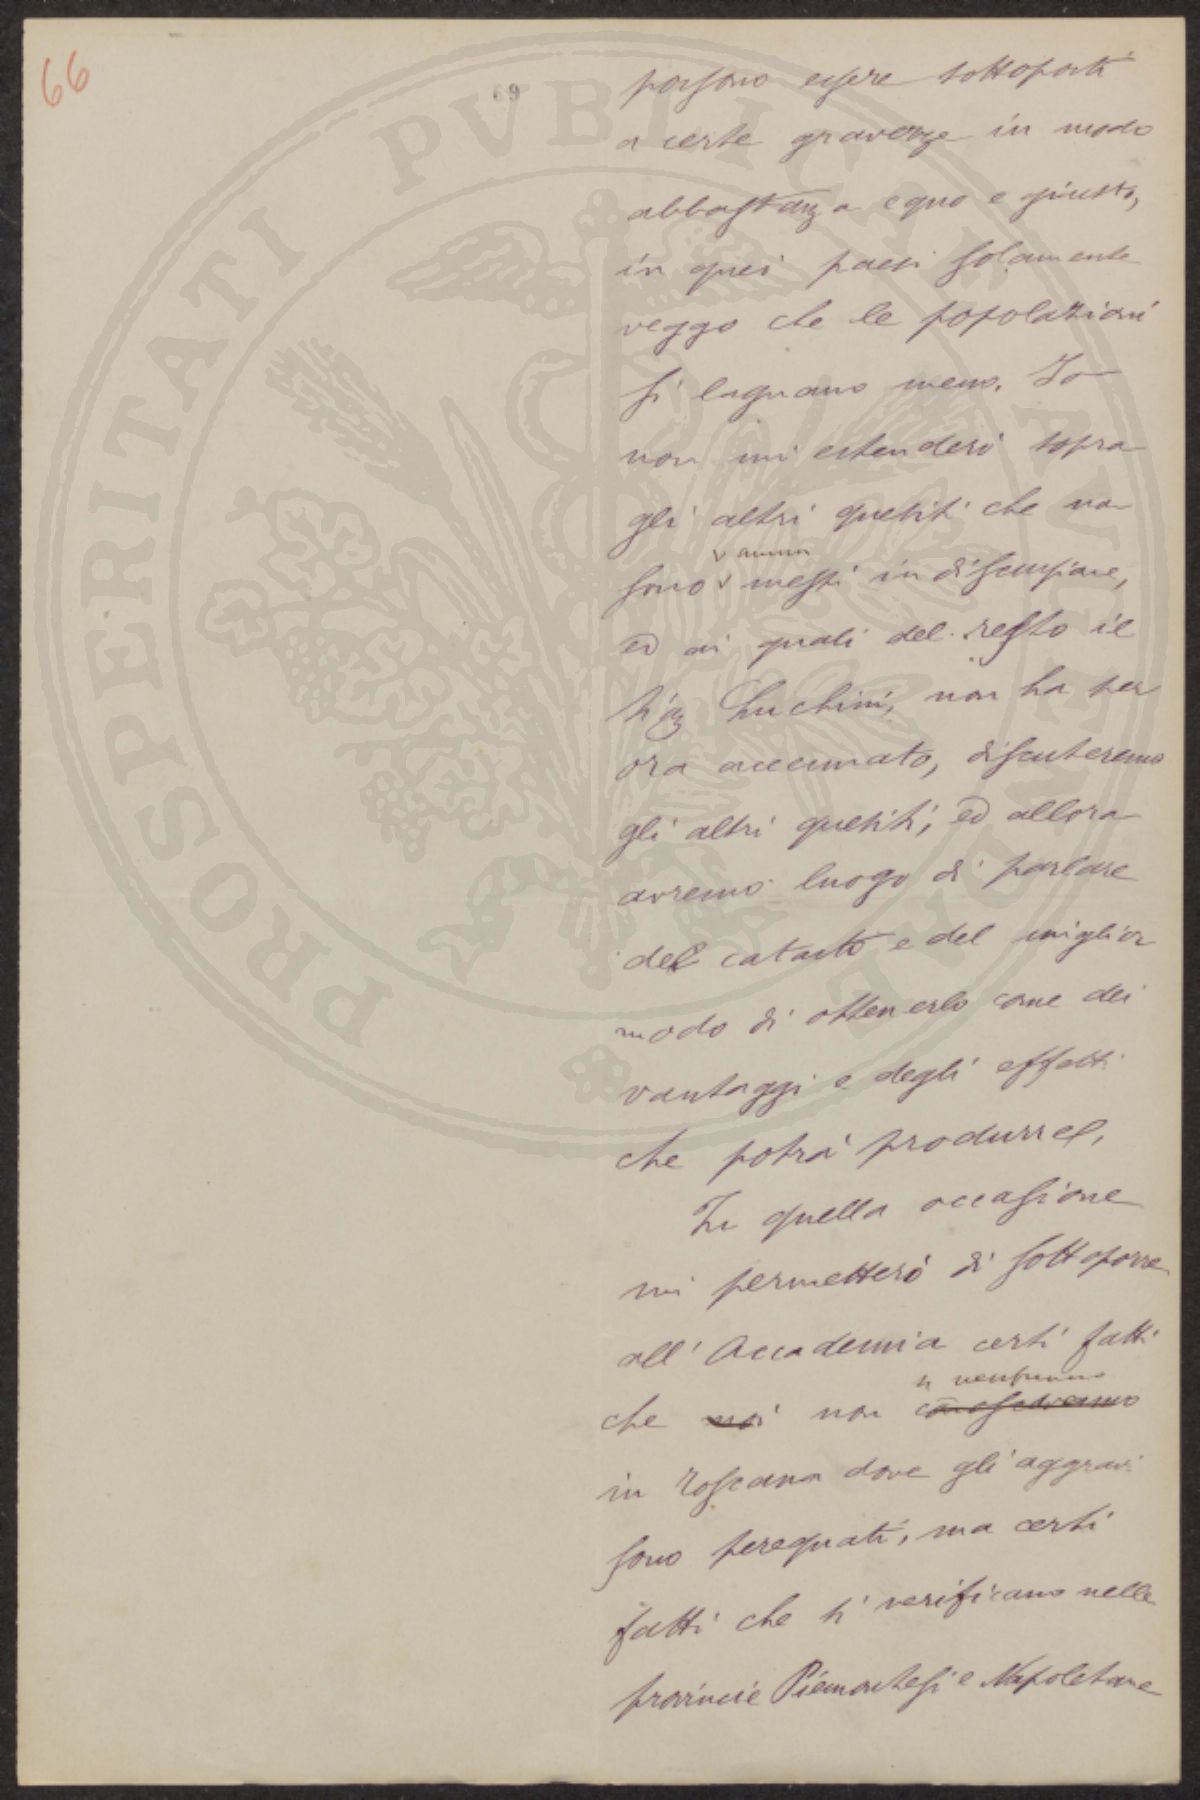 66
69
PROSPERITATI PVBLICAE AVGENDAE
possono essere sottoposti
a certe gravezze in modo
abbastanza equo e giusto,
in quei paesi solamente
veggo che le popolazioni
si lagnano meno. Io
non mi estenderò sopra
gli altri quesiti che non
vanno
sono messi in discussione,
ed ai quali del resto il
Sig Luchini, non ha per
ora accennato, discuteremo
gli altri quesiti, ed allora
avremo luogo di parlare
del catasto e del miglior
modo di ottenerlo come dei
vantaggi e degli effetti
che potrà produrre.
In quella occasione
mi permetterò di sottoporre
all'Accademia certi fatti
che noi non conoscevamo
in Toscana dove gli aggravi
sono perequati, ma certi
fatti che si verificano nelle
provincie Piemontesi e Napoletane